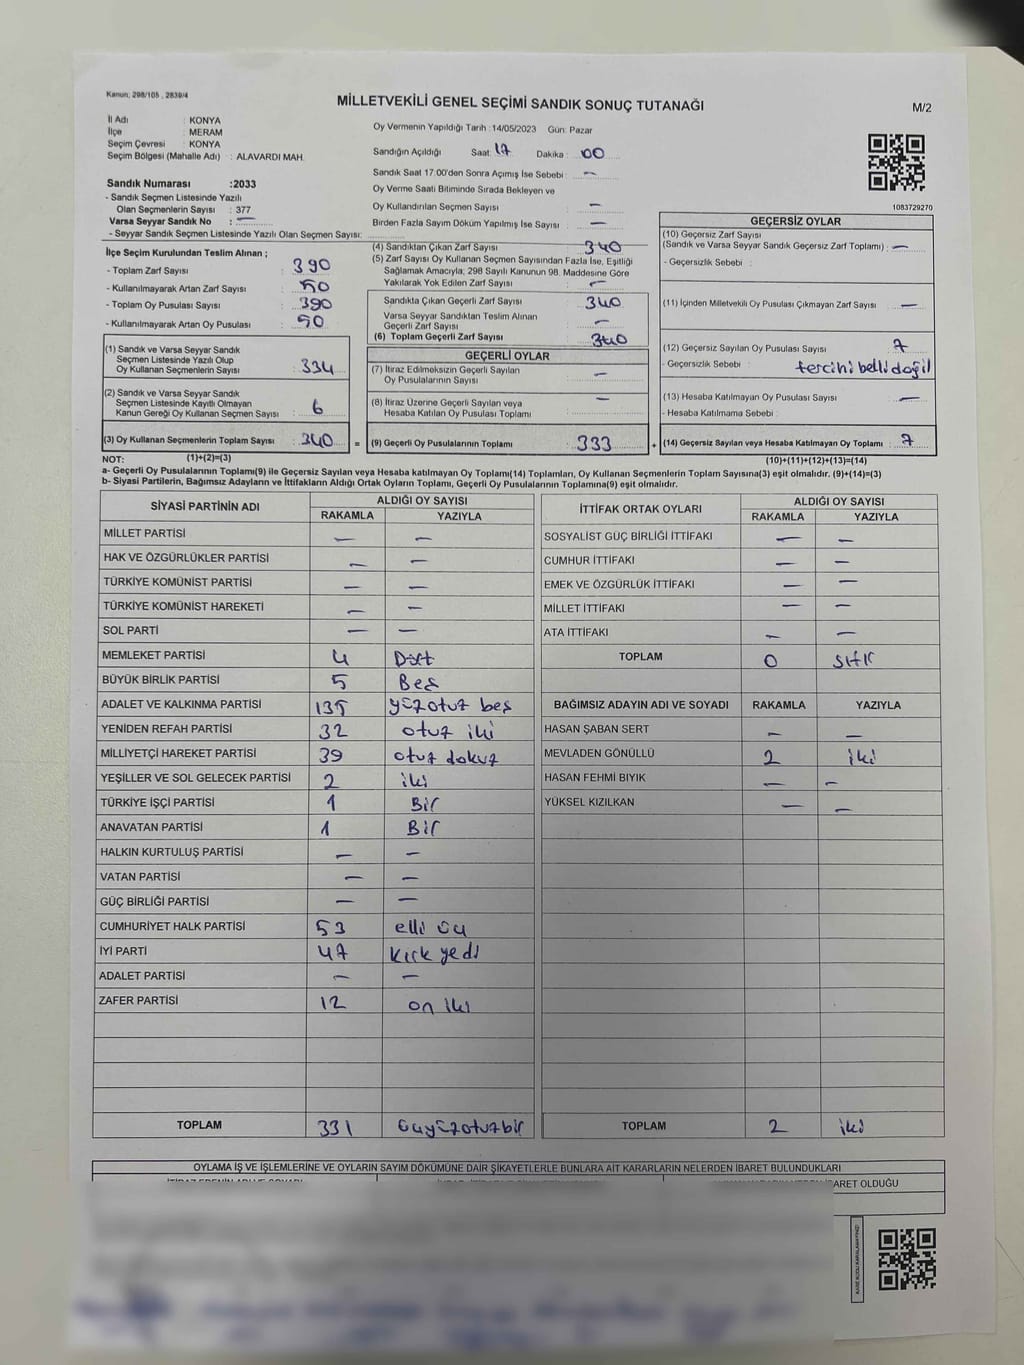 Kanun; 298/105 , 2839/4
MİLLETVEKİLİ GENEL SEÇİMİ SANDIK SONUÇ TUTANAĞI
M/2
İl Adı : KONYA
İlçe : MERAM
Seçim Çevresi : KONYA
Seçim Bölgesi (Mahalle Adı) : ALAVARDI MAH.
Sandık Numarası :2033
- Sandık Seçmen Listesinde Yazılı
Olan Seçmenlerin Sayısı : 377
Varsa Seyyar Sandık No : —
- Seyyar Sandık Seçmen Listesinde Yazılı Olan Seçmen Sayısı:
Oy Vermenin Yapıldığı Tarih :14/05/2023 Gün: Pazar
Sandığın Açıldığı Saat: 17 Dakika : 00
Sandık Saat 17:00'den Sonra Açımış İse Sebebi : —
Oy Verme Saati Bitiminde Sırada Bekleyen ve
Oy Kullandırılan Seçmen Sayısı —
Birden Fazla Sayım Döküm Yapılmış İse Sayısı : —
1083729270
İlçe Seçim Kurulundan Teslim Alınan ;
- Toplam Zarf Sayısı : 390
- Kullanılmayarak Artan Zarf Sayısı : 50
- Toplam Oy Pusulası Sayısı : 390
- Kullanılmayarak Artan Oy Pusulası : 50
(1) Sandık ve Varsa Seyyar Sandık
Seçmen Listesinde Yazılı Olup
Oy Kullanan Seçmenlerin Sayısı : 334
(2) Sandık ve Varsa Seyyar Sandık
Seçmen Listesinde Kayıtlı Olmayan
Kanun Gereği Oy Kullanan Seçmen Sayısı : 6
(3) Oy Kullanan Seçmenlerin Toplam Sayısı : 340
(4) Sandıktan Çıkan Zarf Sayısı : 340
(5) Zarf Sayısı Oy Kullanan Seçmen Sayısından Fazla İse, Eşitliği
Sağlamak Amacıyla; 298 Sayılı Kanunun 98. Maddesine Göre
Yakılarak Yok Edilen Zarf Sayısı : —
Sandıkta Çıkan Geçerli Zarf Sayısı : 340
Varsa Seyyar Sandıktan Teslim Alınan
Geçerli Zarf Sayısı : —
(6) Toplam Geçerli Zarf Sayısı : 340
GEÇERLİ OYLAR
(7) İtiraz Edilmeksizin Geçerli Sayılan
Oy Pusulalarının Sayısı : —
(8) İtiraz Üzerine Geçerli Sayılan veya
Hesaba Katılan Oy Pusulası Toplamı : —
= (9) Geçerli Oy Pusulalarının Toplamı : 333
GEÇERSİZ OYLAR
(10) Geçersiz Zarf Sayısı
(Sandık ve Varsa Seyyar Sandık Geçersiz Zarf Toplamı) : —
- Geçersizlik Sebebi :
(11) İçinden Milletvekili Oy Pusulası Çıkmayan Zarf Sayısı : —
(12) Geçersiz Sayılan Oy Pusulası Sayısı : 7
- Geçersizlik Sebebi : tercihi belli değil
(13) Hesaba Katılmayan Oy Pusulası Sayısı : —
- Hesaba Katılmama Sebebi :
+ (14) Geçersiz Sayılan veya Hesaba Katılmayan Oy Toplamı : 7
NOT: (1)+(2)=(3)
(10)+(11)+(12)+(13)=(14)
a- Geçerli Oy Pusulalarının Toplamı(9) ile Geçersiz Sayılan veya Hesaba katılmayan Oy Toplamı(14) Toplamları, Oy Kullanan Seçmenlerin Toplam Sayısına(3) eşit olmalıdır. (9)+(14)=(3)
b- Siyasi Partilerin, Bağımsız Adayların ve İttifakların Aldığı Ortak Oyların Toplamı, Geçerli Oy Pusulalarının Toplamına(9) eşit olmalıdır.
SİYASİ PARTİNİN ADI ALDIĞI OY SAYISI
RAKAMLA YAZIYLA
MİLLET PARTİSİ — —
HAK VE ÖZGÜRLÜKLER PARTİSİ — —
TÜRKİYE KOMÜNİST PARTİSİ — —
TÜRKİYE KOMÜNİST HAREKETİ — —
SOL PARTİ — —
MEMLEKET PARTİSİ 4 Dört
BÜYÜK BİRLİK PARTİSİ 5 Beş
ADALET VE KALKINMA PARTİSİ 135 yüzotuz beş
YENİDEN REFAH PARTİSİ 32 otuz iki
MİLLİYETÇİ HAREKET PARTİSİ 39 otuz dokuz
YEŞİLLER VE SOL GELECEK PARTİSİ 2 iki
TÜRKİYE İŞÇİ PARTİSİ 1 Bir
ANAVATAN PARTİSİ 1 Bir
HALKIN KURTULUŞ PARTİSİ — —
VATAN PARTİSİ — —
GÜÇ BİRLİĞİ PARTİSİ — —
CUMHURİYET HALK PARTİSİ 53 elli üç
İYİ PARTİ 47 kırk yedi
ADALET PARTİSİ — —
ZAFER PARTİSİ 12 on iki
TOPLAM 331 üçyüzotuzbir
İTTİFAK ORTAK OYLARI ALDIĞI OY SAYISI
RAKAMLA YAZIYLA
SOSYALİST GÜÇ BİRLİĞİ İTTİFAKI — —
CUMHUR İTTİFAKI — —
EMEK VE ÖZGÜRLÜK İTTİFAKI — —
MİLLET İTTİFAKI — —
ATA İTTİFAKI — —
TOPLAM 0 sıfır
BAĞIMSIZ ADAYIN ADI VE SOYADI RAKAMLA YAZIYLA
HASAN ŞABAN SERT — —
MEVLADEN GÖNÜLLÜ 2 iki
HASAN FEHMİ BIYIK — —
YÜKSEL KIZILKAN — —
TOPLAM 2 iki
OYLAMA İŞ VE İŞLEMLERİNE VE OYLARIN SAYIM DÖKÜMÜNE DAİR ŞİKAYETLERLE BUNLARA AİT KARARLARIN NELERDEN İBARET BULUNDUKLARI
BARET OLDUĞU